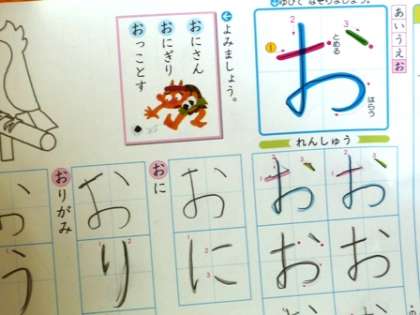 ゆびで なぞりましょう。
あいうえお
1
2
3
お
とめる
はらう
よみましょう。
おにさん
おにぎり
おっことす
れんしゅう
お お
お お
おに
おに
おりがみ
おり
う